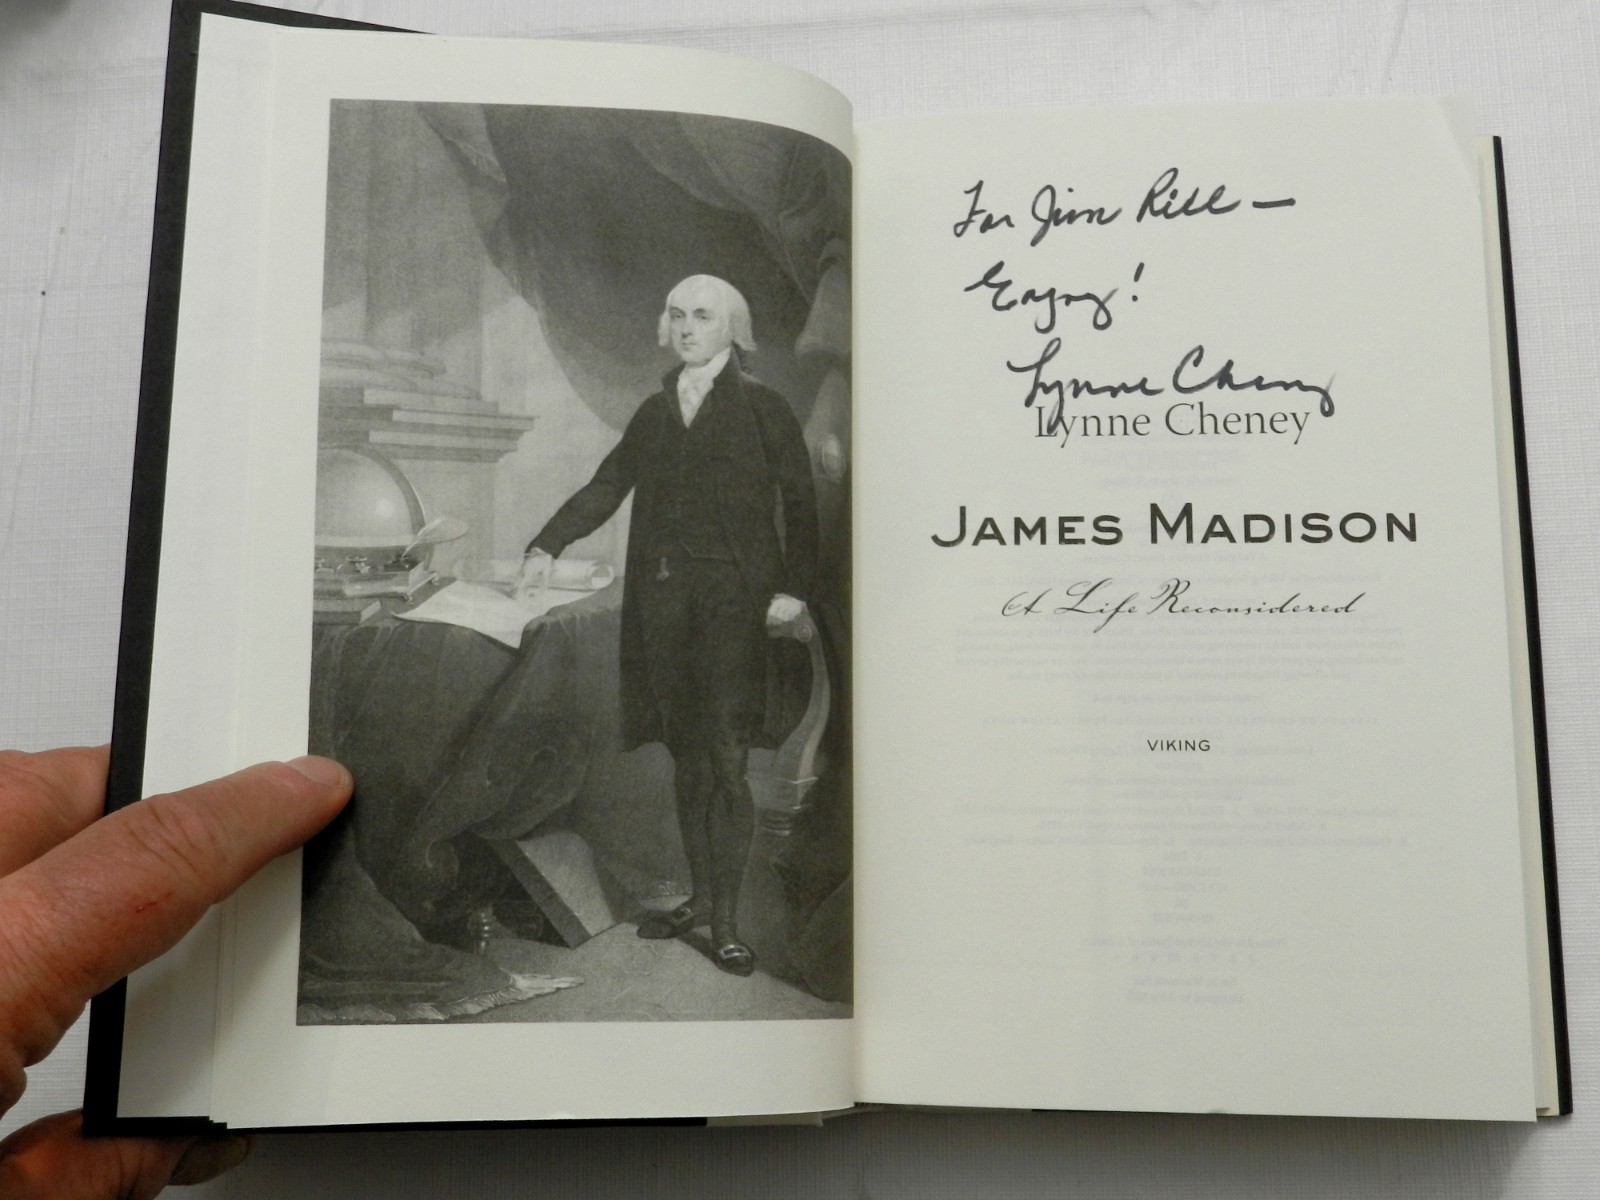 For Jim Rill —
Enjoy!
Lynne Cheney
Lynne Cheney
JAMES MADISON
A Life Reconsidered
VIKING